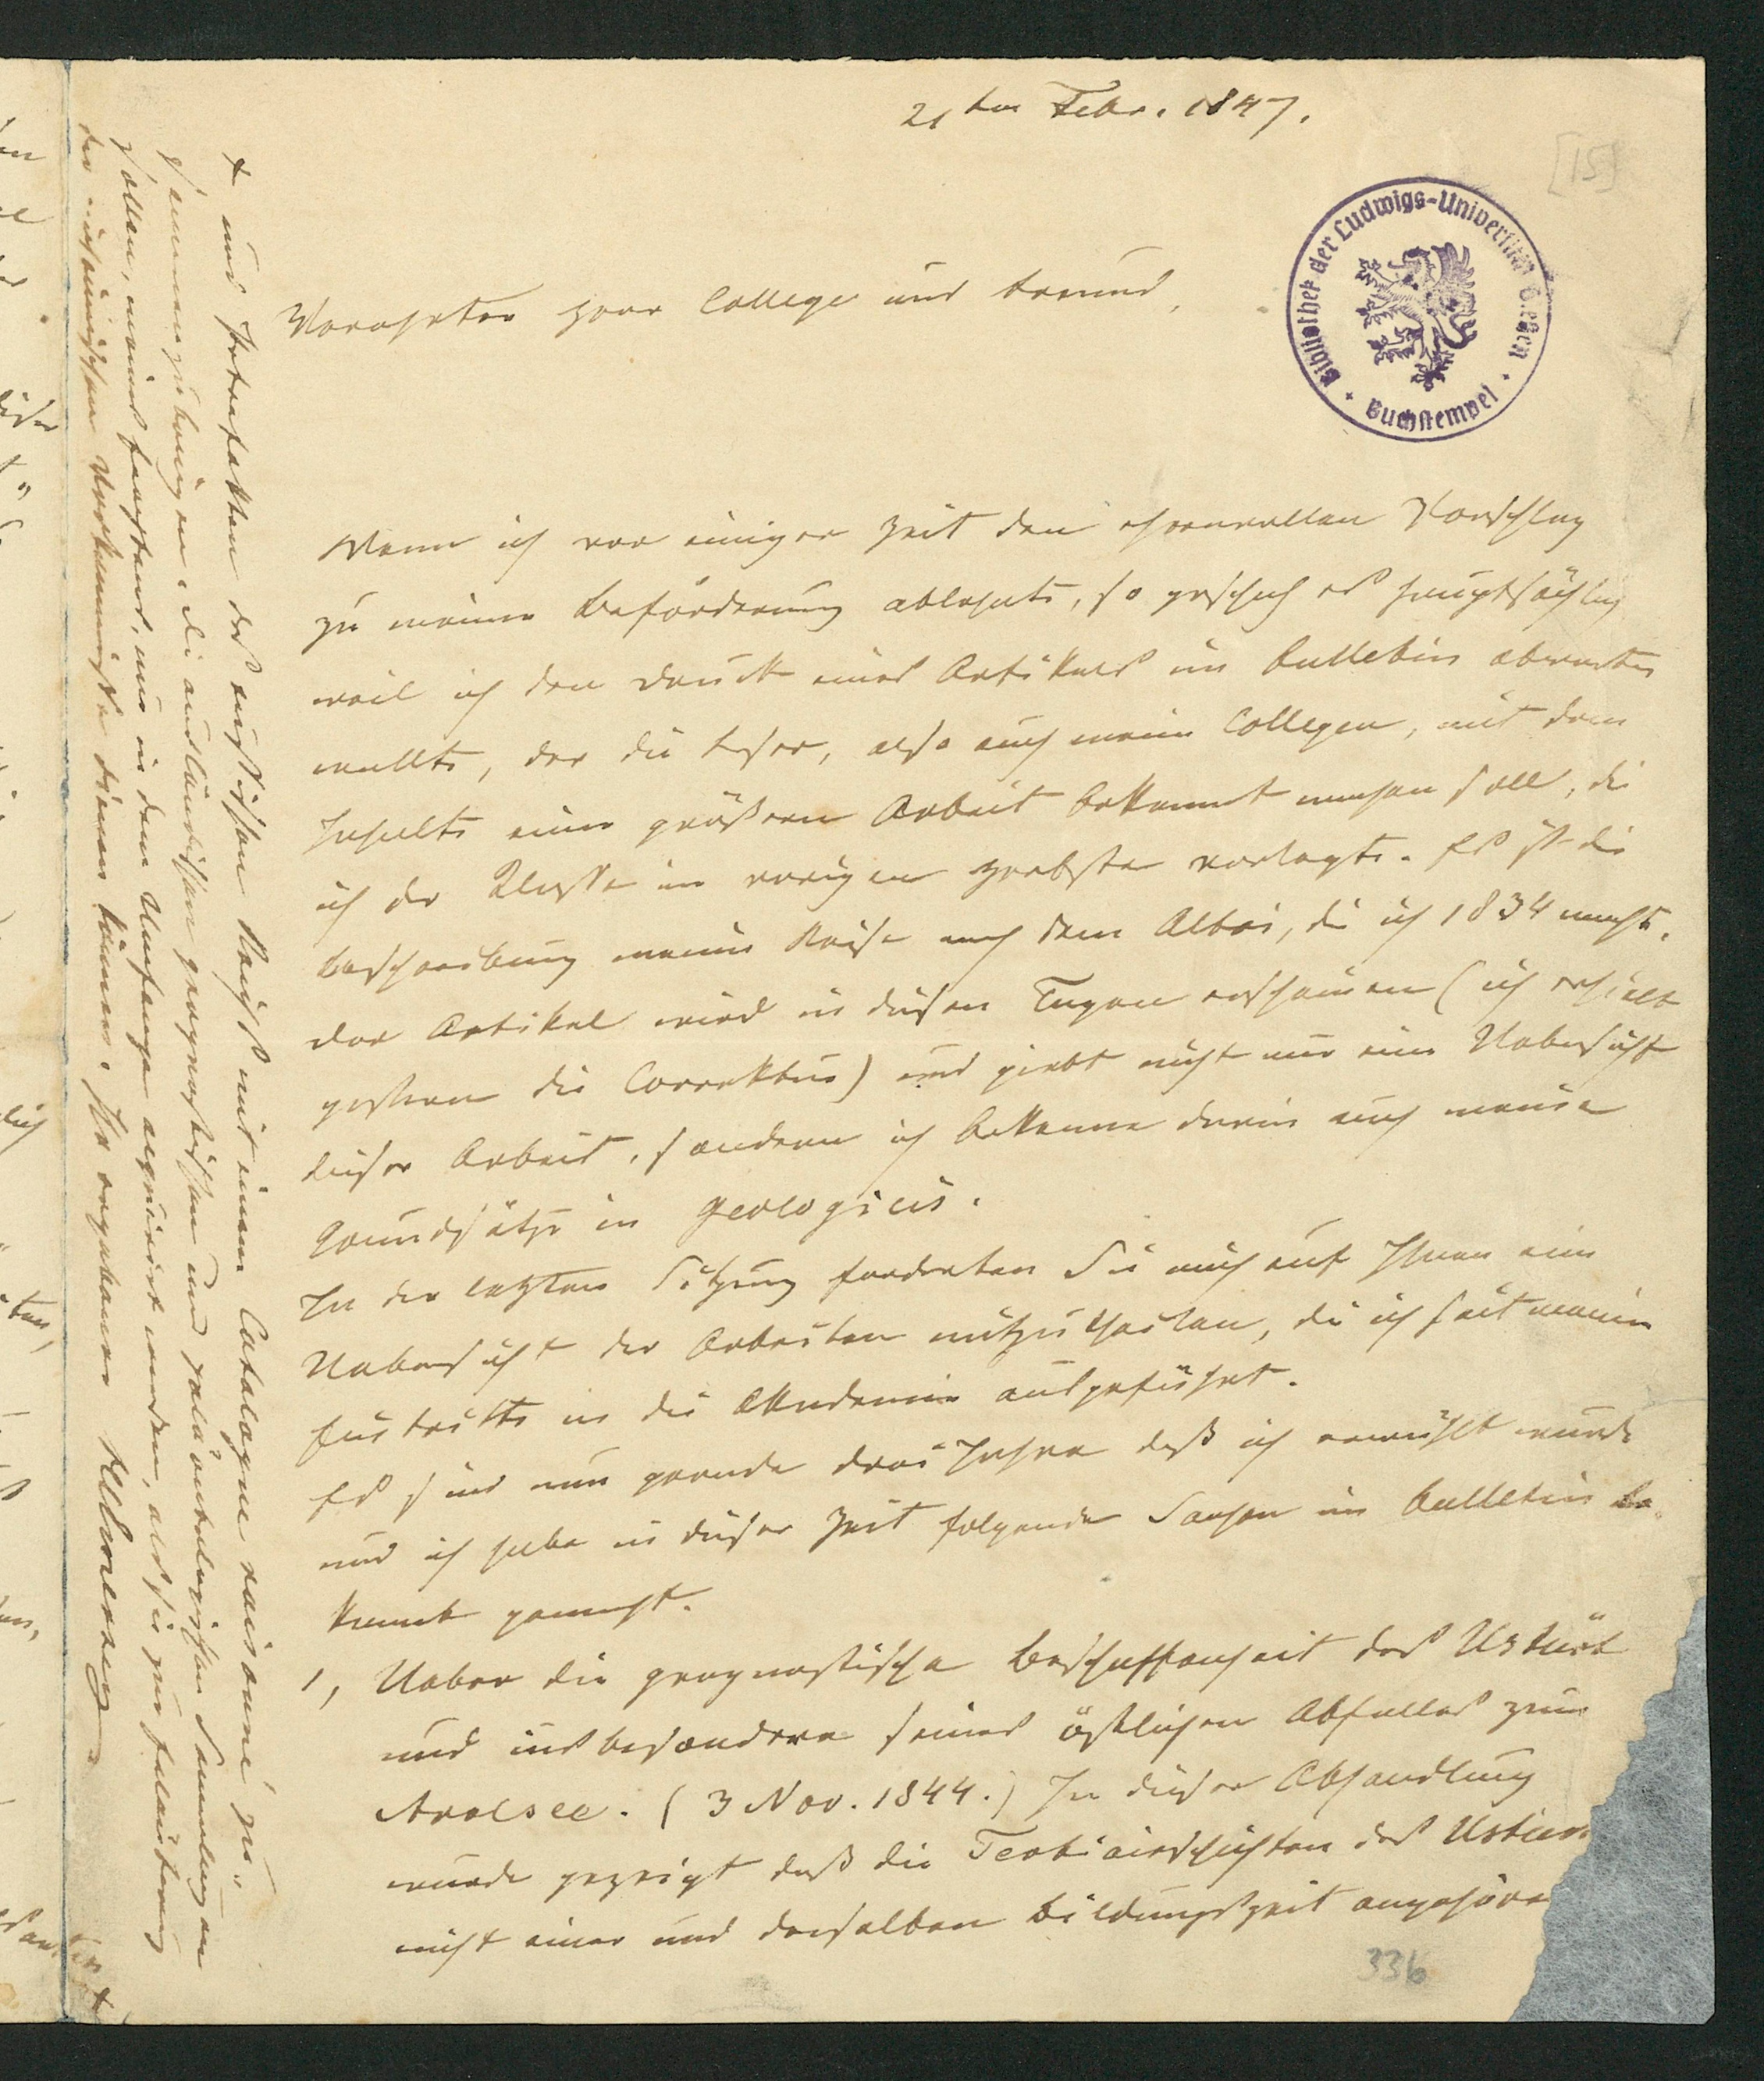 21ten Febr. 1847.
[15]
Bibliothek der Ludwigs-Universität Giessen
Buchstempel
Verehrter Herr College und Freund,
Wenn ich vor einiger Zeit den ehrenvollen Vorschlag
zu meiner Beförderung ablehnte, so geschah es hauptsächlich
weil ich den Druck eines Artikels im Bulletin abwarten
wollte, der die Leser, also auch meine Collegen, mit dem
Inhalte einer größern Arbeit bekannt machen soll, die
ich der Klasse im vorigen Herbste vorlegte. Es ist die
Beschreibung meiner Reise nach dem Altai, die ich 1834 machte.
Der Artikel wird in diesen Tagen erscheinen (ich erhielt
gestern die Correktur) und giebt nicht nur eine Uebersicht
dieser Arbeit, sondern ich bekenne darin auch meine
Grundsätze in geologicis.
In der letzten Sitzung forderten Sie mich auf Ihnen eine
Uebersicht der Arbeiten mitzutheilen, die ich seit meinem
Eintritte in die Akademie ausgeführt.
Es sind nun gerade drei Jahre daß ich erwählt wurde
und ich habe in dieser Zeit folgende Sachen im Bulletin be-
kannt gemacht.
1, Ueber die geognostische Beschaffenheit des Ustürt
und insbesondere seines östlichen Abfalles zum
Aralsee. (3 Nov. 1844.) In dieser Abhandlung
wurde gezeigt daß die Tertiairschichten des Ustür
nicht einer und derselben Bildungszeit angehöre
336
+ und Petrefakten des russischen Reichs mit einem Catalogue raisonné zu-
sammenzubringen. Die ausländischen geognostischen und paläontologischen Sammlungen
sollen, meines Erachtens, nur in dem Umfange acquirirt werden, als sie zur Erläuterung
der einheimischen Vorkommnisse dienen können. Ihr ergebener Helmersen